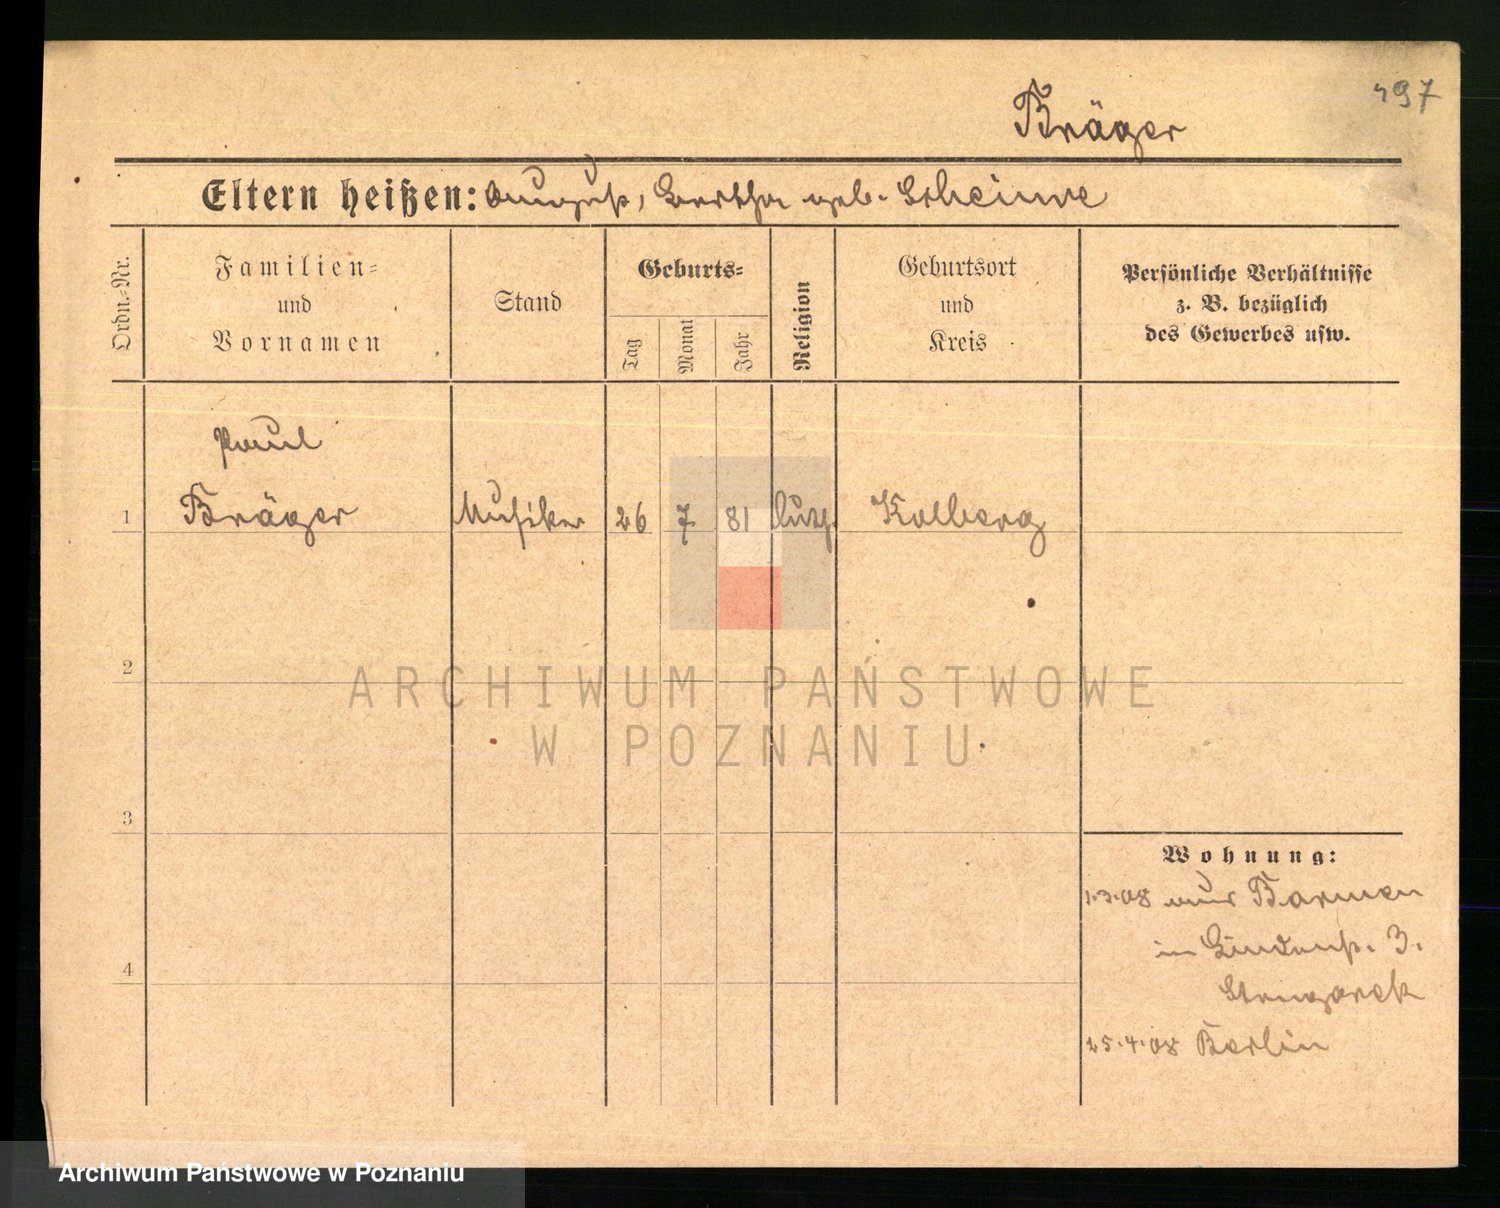 497
Kräger
Eltern heißen: August, Bertha geb. Scheiwe
Ordn.-Nr.
Familien-
und
Vornamen
Stand
Geburts-
Tag
Monat
Jahr
Religion
Geburtsort
und
Kreis
Persönliche Verhältnisse
z. B. bezüglich
des Gewerbes usw.
Paul
1 Kräger Musiker 26 7 81 luth. Kolberg
2
ARCHIWUM PAŃSTWOWE
W POZNANIU
3
Wohnung:
1.3.08 aus Barmen
in Lindenst. 3.
4
25.4.08 Berlin
Archiwum Państwowe w Poznaniu